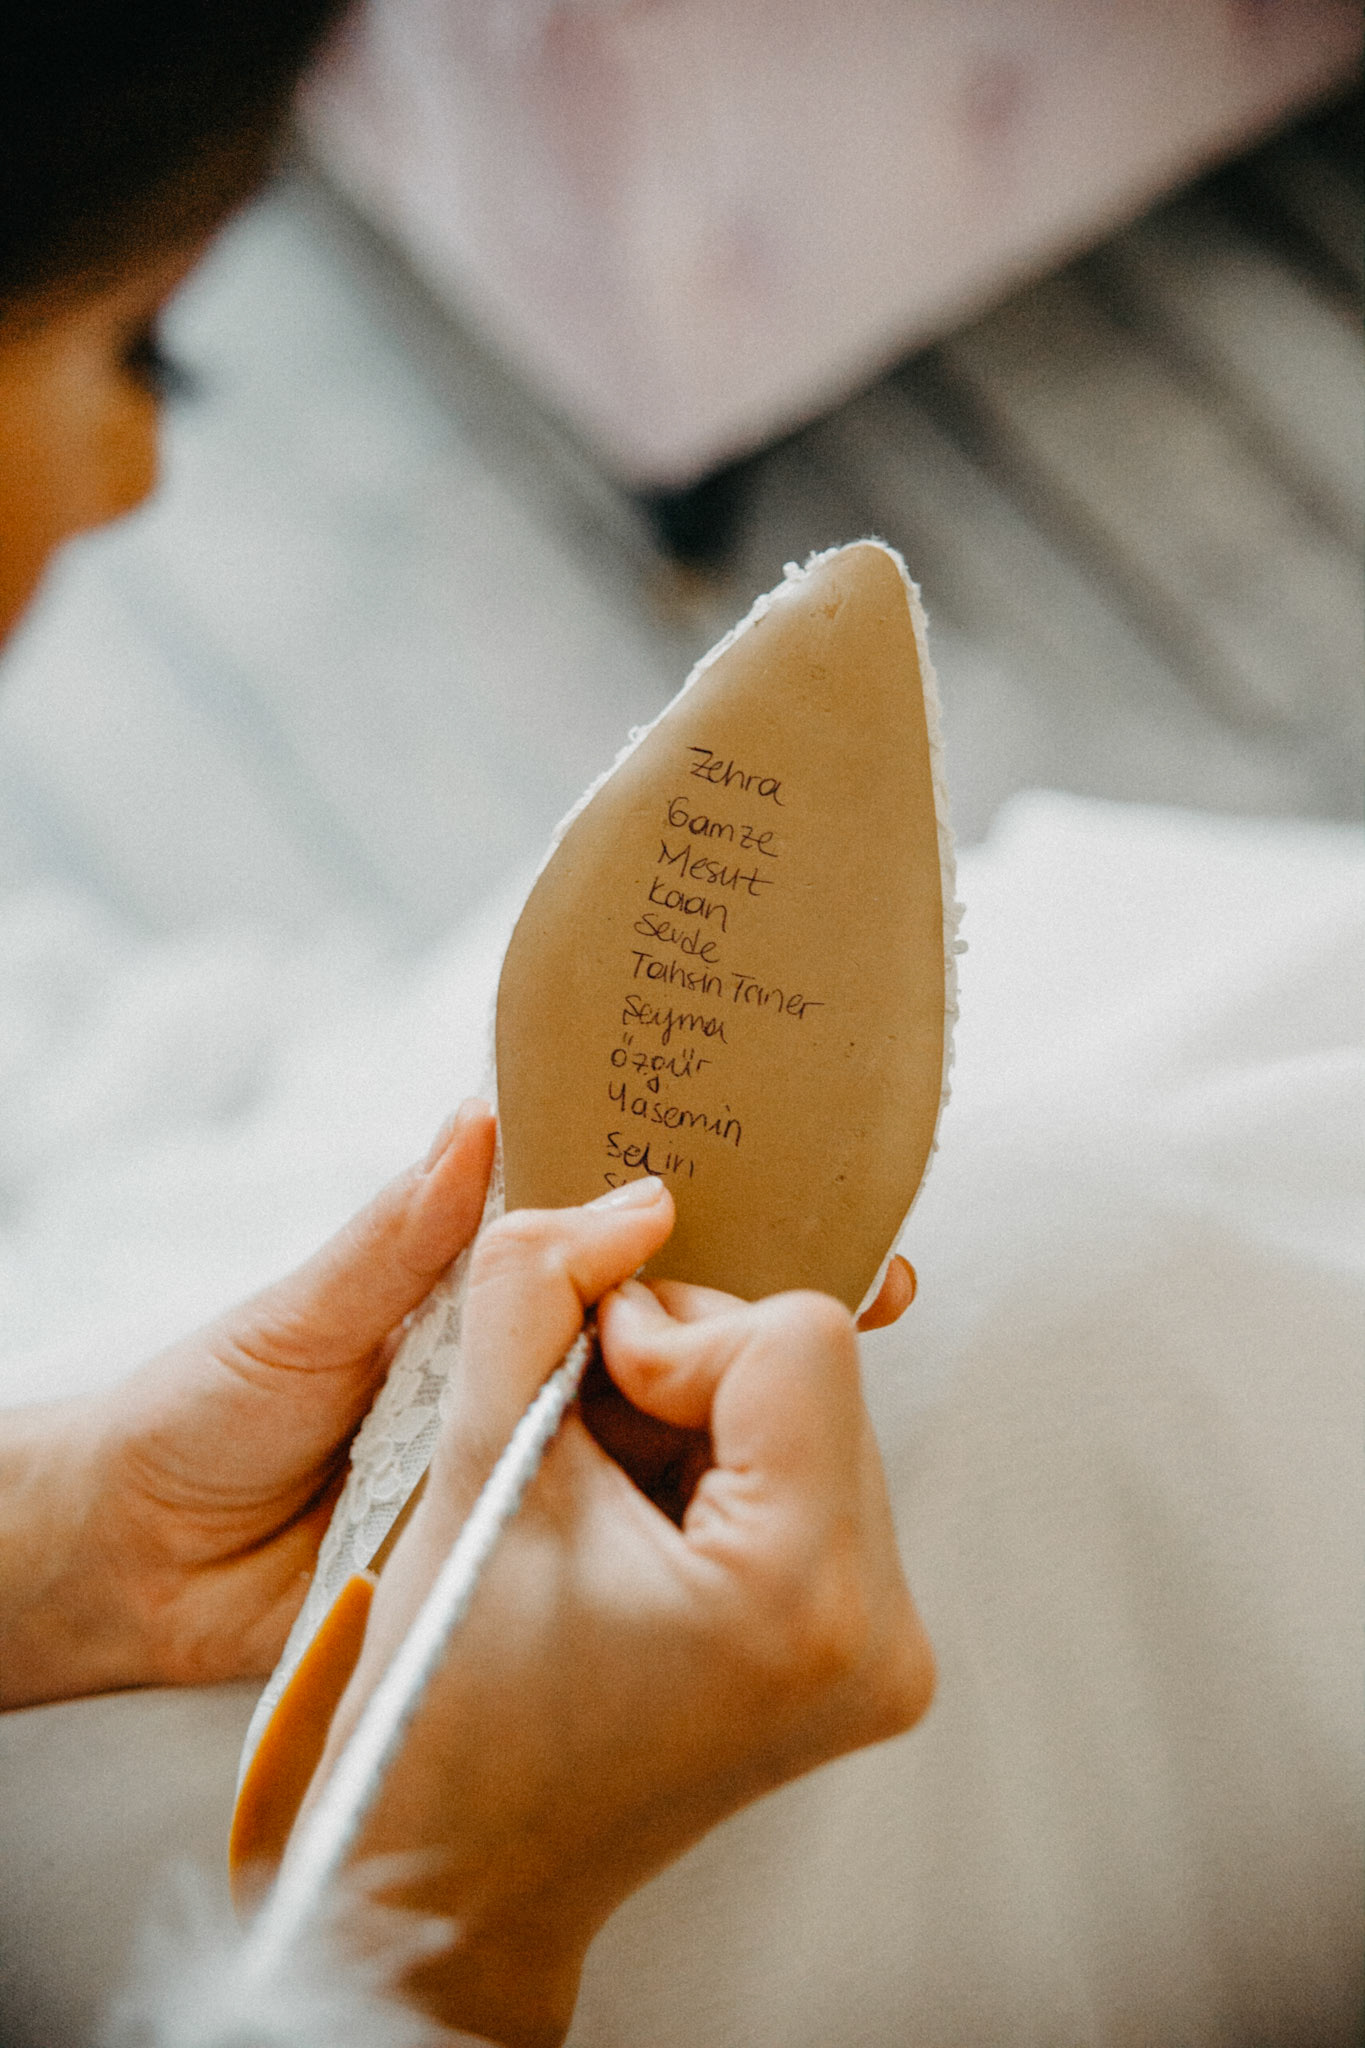 Zehra
Gamze
Mesut
Kaan
Sevde
Tahsin Taner
Şeyma
Özgür
Yasemin
Selin